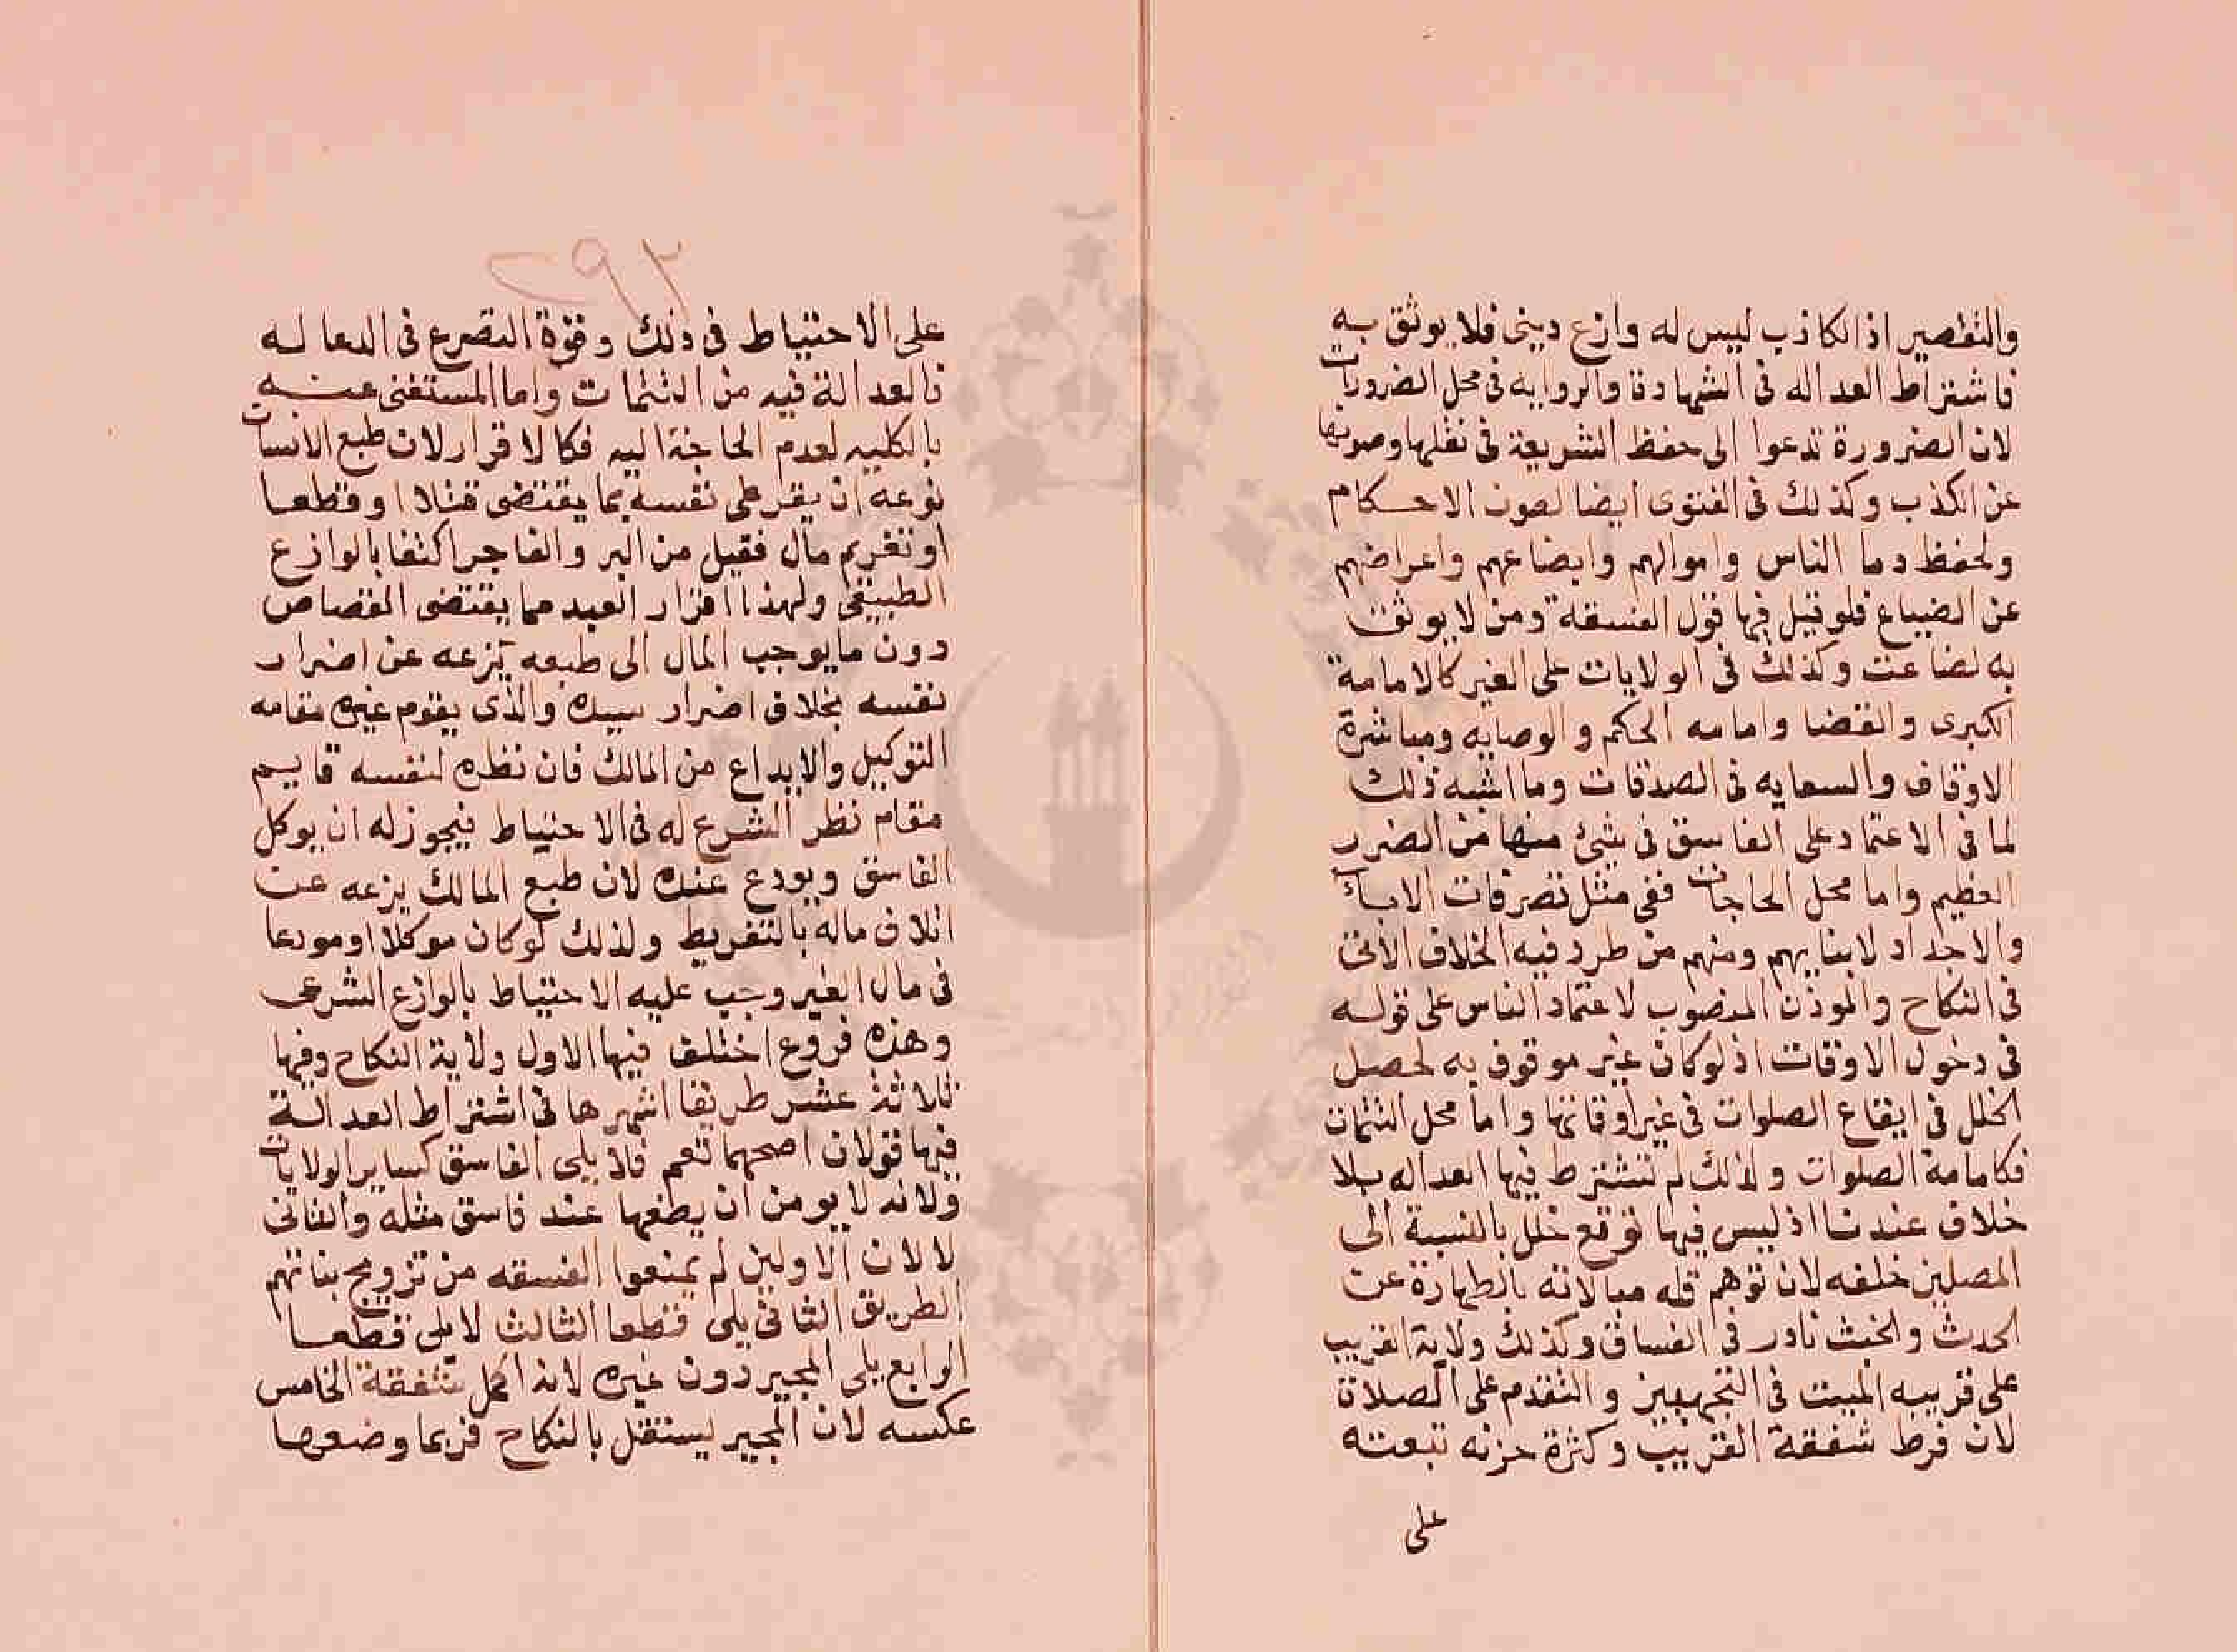 والتقصير اذ الكاذب ليس له وازع ديني فلا يوثق به
فاشتراط العداله في الشهادة والروايه في محل الضرورات
لان الضرورة تدعوا الى حفظ الشريعة في نقلها وصونها
عن الكذب وكذلك في الفتوى ايضا لصون الاحكام
ولحفظ دما الناس واموالهم وابضاعهم واعراضهم
عن الضياع فلو قبل فيها قول الفسقة ومن لا يوثق
به لضاعت وكذلك في الولايات على الغير كالامامة
الكبرى والقضا وامامه الحكم والوصايه ومباشرة
الاوقاف والسعايه في الصدقات وما اشبه ذلك
لما في الاعتماد على الفاسق في شئ منها من الضرر
العظيم واما محل الحاجات ففي مثل تصرفات الاباء
والاجداد لابنايهم ومنهم من طرد فيه الخلاف الاتى
في النكاح والموذن المنصوب لاعتماد الناس على قوله
في دخول الاوقات اذ لو كان غير موثوق به لحصل
الخلل في ايقاع الصلوات في غير اوقاتها واما محل التتمات
فكامامة الصلوات ولذلك لم تشترط فيها العداله بلا
خلاف عندنا اذ ليس فيها توقع خلل بالنسبة الى
المصلين خلفه لان توهم قله مبالاته بالطهارة عن
الحدث والخبث نادر في الفساق وكذلك ولاية القريب
على قريبه الميت في التجهيز والتقدم على الصلاة
لان فرط شفقة القريب وكثرة حزنه تبعثه
على
٢٩٣
على الاحتياط في ذلك وقوة التضرع في الدعا له
فالعدالة فيه من التتمات واما المستغنى عنه
بالكليه لعدم الحاجة اليه فكالاقرار لان طبع الانسان
نوعه ان يقر على نفسه بما يقتضى قتلا او قطعا
او تغريم مال فقبل من البر والفاجر اكتفا بالوازع
الطبيعي ولهذا اقرار العبد مما يقتضى القصاص
دون ما يوجب المال الى طبعه يزعه عن اضرار
نفسه بخلاف اضرار سيده والذى يقوم غيره مقامه
التوكيل والايداع من المالك فان نظره لنفسه قايم
مقام نظر الشرع له في الاحتياط فيجوز له ان يوكل
الفاسق ويودع عنده لان طبع المالك يزعه عن
اتلاف ماله بالتفريط ولذلك لو كان موكلا او مودعا
في مال الغير وجب عليه الاحتياط بالوازع الشرعى
وهذه فروع اختلف فيها الاول ولاية النكاح وفيها
ثلاثة عشر طريقا اشهرها في اشتراط العدالة
فيها قولان اصحهما نعم فلا يلى الفاسق كساير الولايات
ولانه لا يومن ان يضعها عند فاسق مثله والثانى
لا لان الاولين لم يمنعوا الفسقه من تزويج بناتهم
الطريق الثاني يلى قطعا الثالث لا يلى قطعا
الرابع يلى المجبر دون غيره لانه اكمل شفقة الخامس
عكسه لان المجبر يستقل بالنكاح فربما وضعها